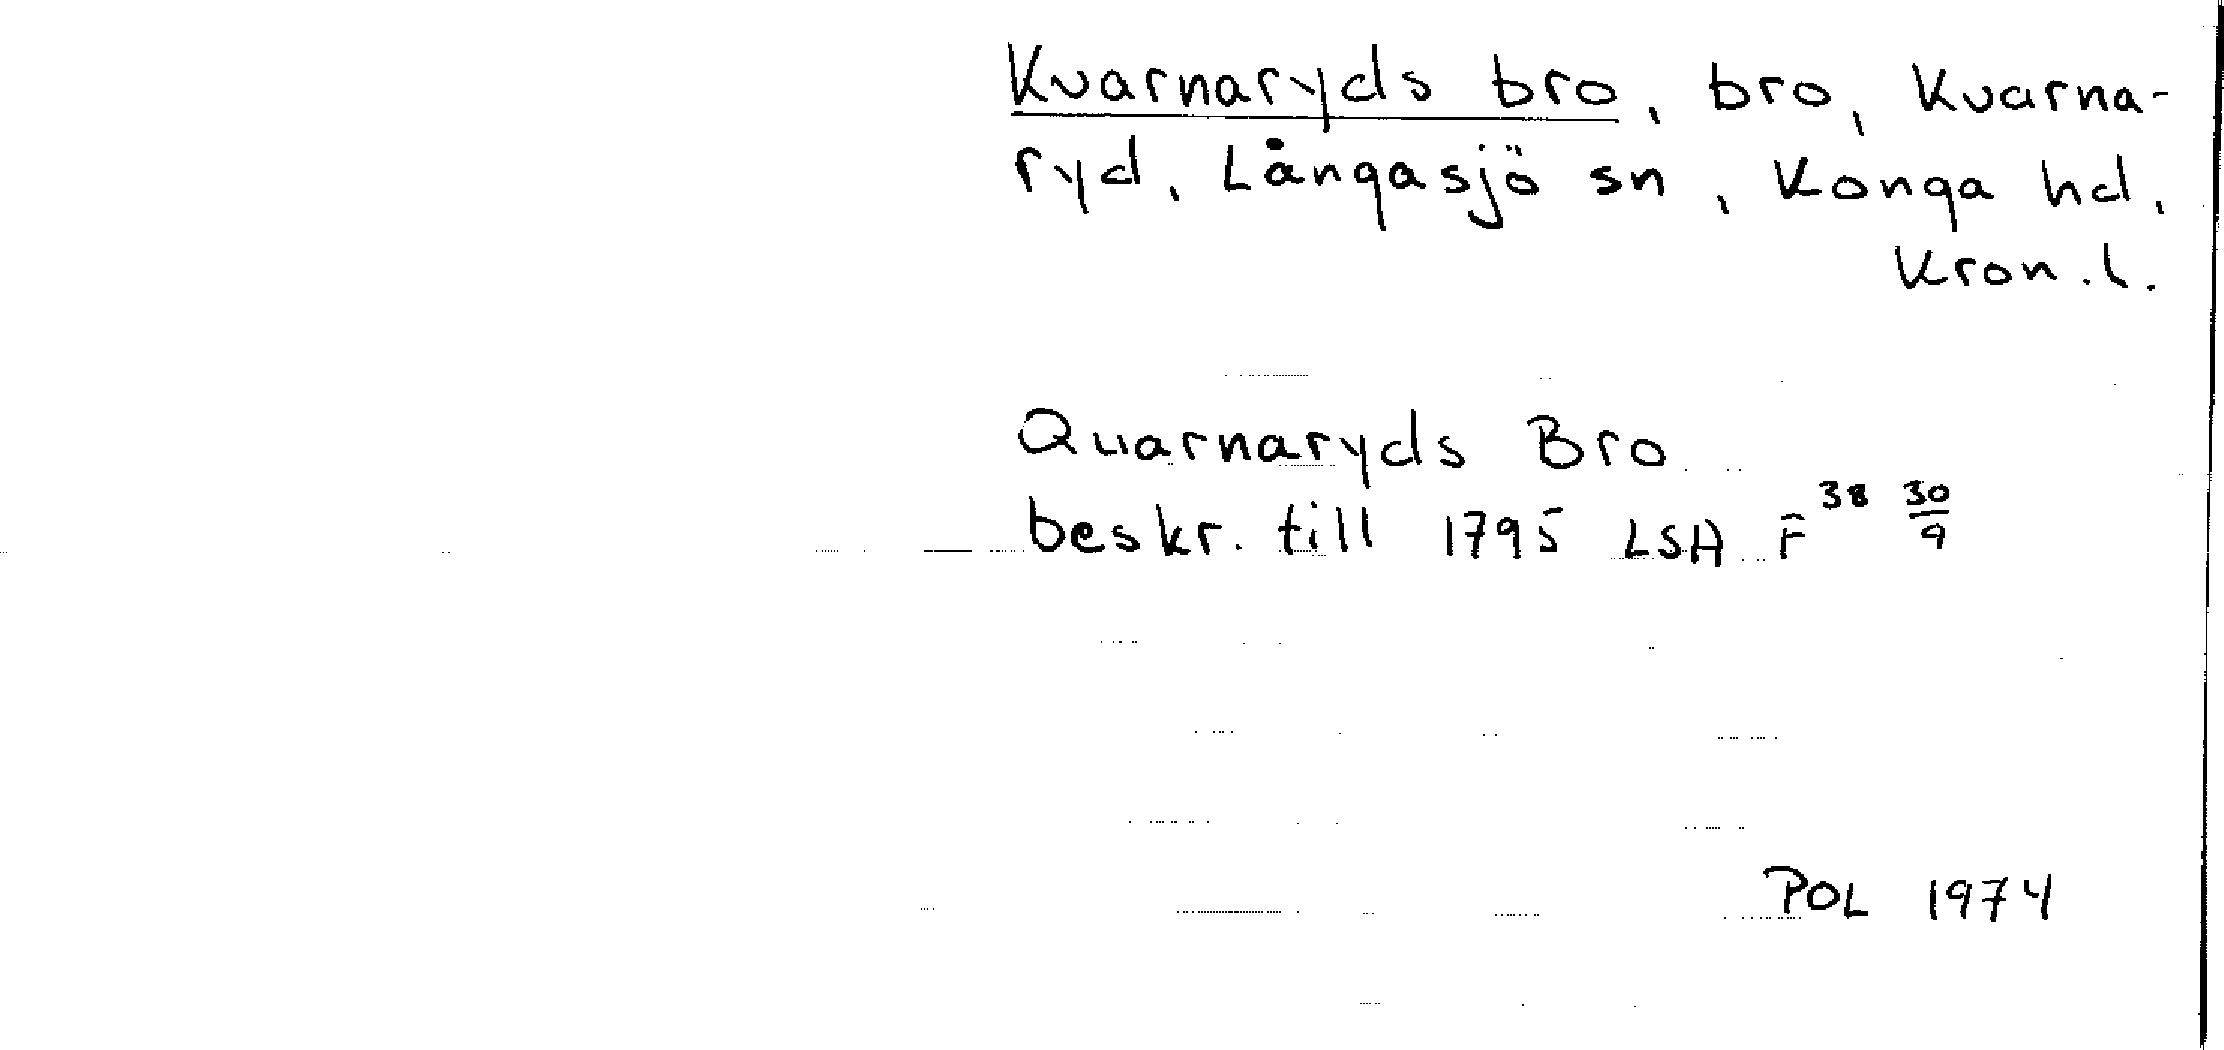 Kvarnaryds bro, bro, Kvarna-
ryd, Långasjö sn, Konga hd,
Kron.l.
Quarnaryds Bro
beskr. till 1795 LSA F 38 30/9
POL 1974